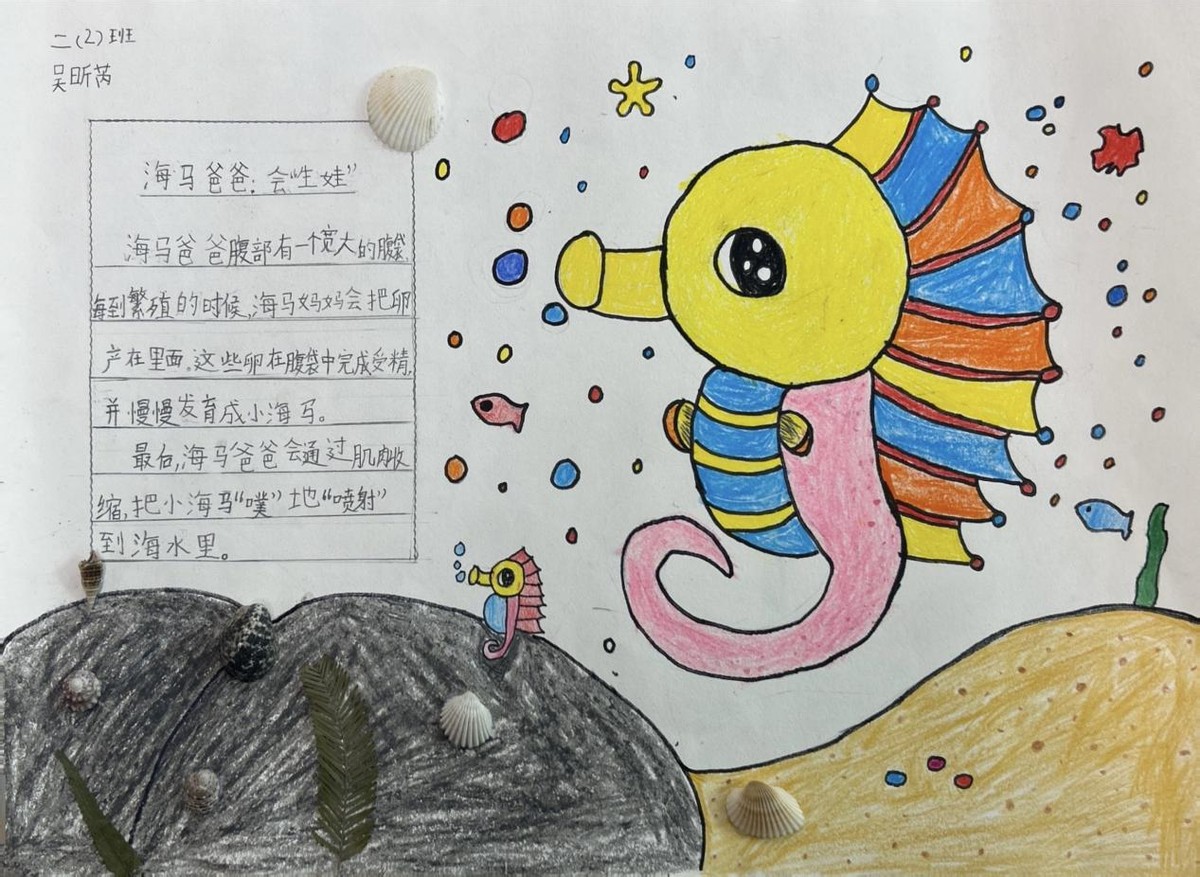 二(2)班
吴昕芮
海马爸爸：会“生娃”
海马爸爸腹部有一个宽大的腹袋,
每到繁殖的时候,海马妈妈会把卵
产在里面。这些卵在腹袋中完成受精,
并慢慢发育成小海马。
最后,海马爸爸会通过肌肉收
缩,把小海马“噗”地“喷射”
到海水里。